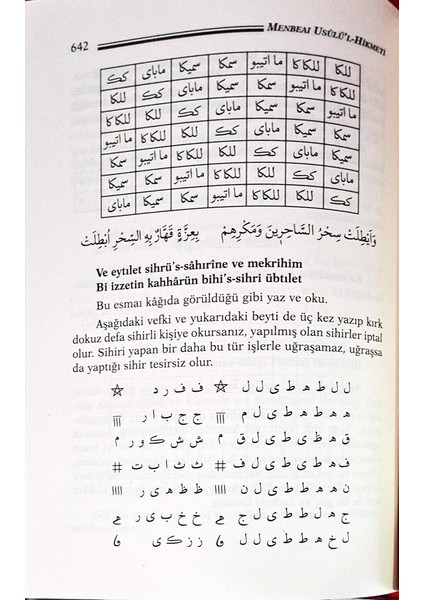 642
MENBEAI USÛLÜ'L-HİKMETİ
للكا للكاكا ما اتيبو سمكا سميكا ماباى كك
للكاكا ما اتيبو سمكا سميكا ماباى كك للكا
ما اتيبو سمكا سميكا ماباى كك للكا للكاكا
سمكا سميكا ماباى كك للكا للكاكا ما اتيبو
سميكا ماباى كك للكا للكاكا ما اتيبو سمكا
ماباى كك للكا للكاكا ما اتيبو سمكا سميكا
كك للكا للكاكا ما اتيبو سمكا سميكا ماباى
وَأَيْطِلَتْ سِحْرُ السَّاحِرِينَ وَمَكْرِهِمْ بِعِزَّةٍ قَهَّارٌ بِهِ السِّحْرِ أُبْطِلَتْ
Ve eytılet sihrü's-sâhırîne ve mekrihim
Bi izzetin kahhârün bihi's-sihri übtılet
Bu esmaı kâğıda görüldüğü gibi yaz ve oku.
Aşağıdaki vefki ve yukarıdaki beyti de üç kez yazıp kırk
dokuz defa sihirli kişiye okursanız, yapılmış olan sihirler iptal
olur. Sihiri yapan bir daha bu tür işlerle uğraşamaz, uğraşsa
da yaptığı sihir tesirsiz olur.
ل ل ط ه ط ى ل ل ✡ ف ف ر د ✡
ه ه ط ه ط ى ل م ااا ج ج ب ا ر ااا
ق ه ظ ى ط ى ل ق م ش ش ك و ر م
ف ه ط ى ط ى ل ف # ث ث ا ب ت #
ن ه ه ط ط ى ل ن اااا ظ ظ ه ى ر اااا
ج ه ل ط ط ى ل ج ج خ خ ب ى ر ج
ل خ ه ط ط ى ل ل ６ ز ز ك ى ６